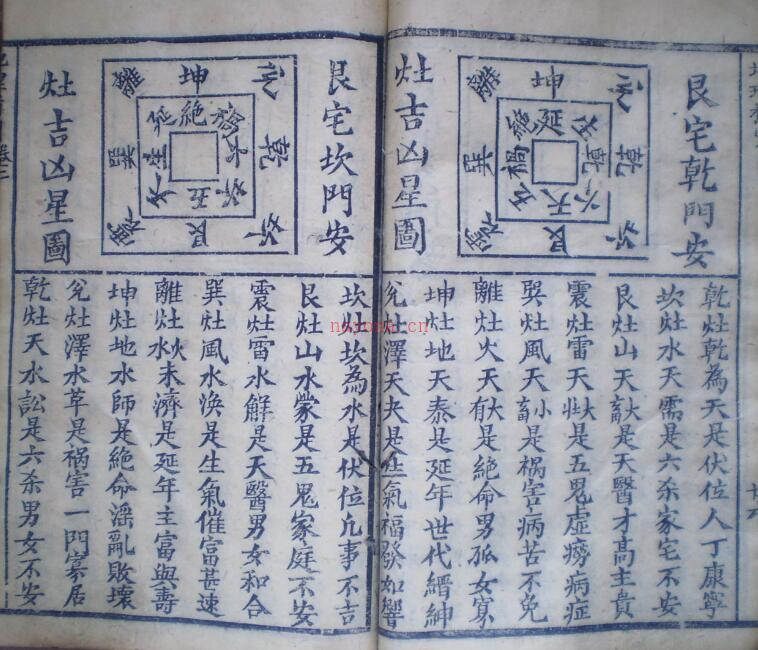 艮宅乾門安
灶吉凶星圖
坤
離
巽
乾
艮
延
絶
禍
乾
天
六
乾灶乾為天是伏位人丁康寧
坎灶水天需是六杀家宅不安
艮灶山天大畜是天醫才高主貴
震灶雷天大壯是五鬼虛癆病症
巽灶風天小畜是禍害病苦不免
離灶火天大有是絕命男孤女寡
坤灶地天泰是延年世代縉紳
兌灶澤天夬是生氣福發如響
艮宅坎門安
灶吉凶星圖
坤
離
巽
乾
艮
絶
禍
延
生
五
坎灶坎為水是伏位凡事不吉
艮灶山水蒙是五鬼家庭不安
震灶雷水解是天醫男女和合
巽灶風水渙是生氣催富甚速
離灶火水未濟是延年主富與壽
坤灶地水師是絕命淫亂敗壞
兌灶澤水革是禍害一門寡居
乾灶天水訟是六杀男女不安